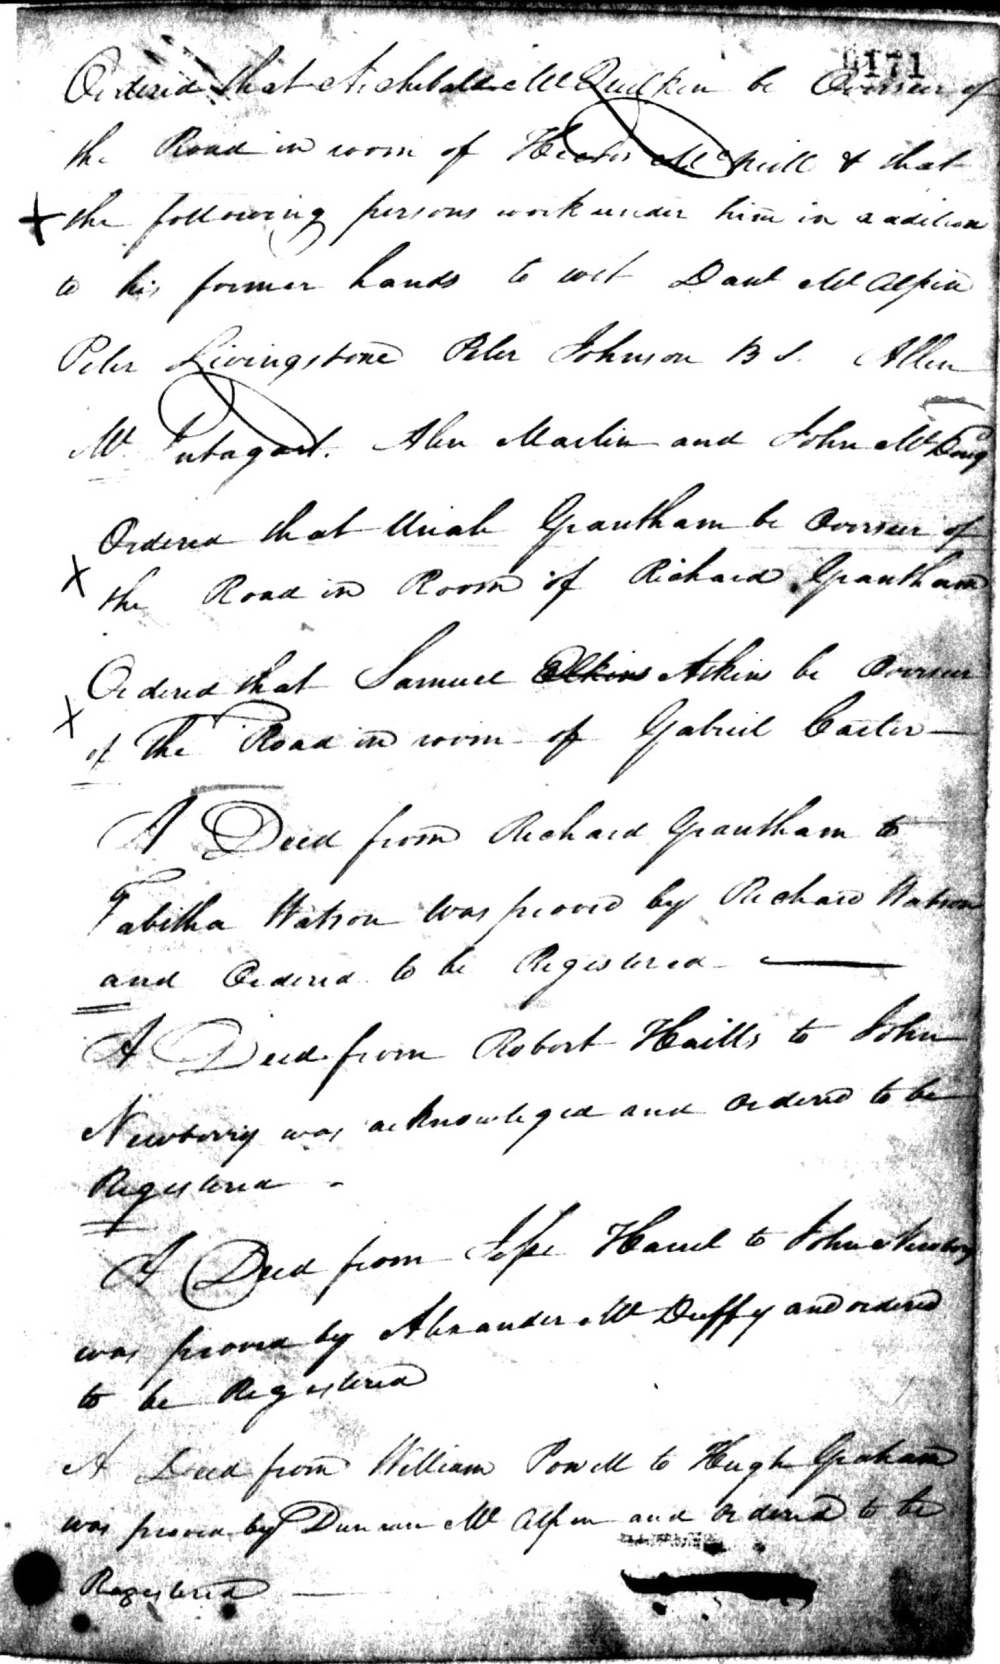 0171
Ordered that Archibald McQuilkin be Overseer of
the Road in room of Hector McNeill & that
the following persons work under him in addition
to his former hands to wit Danl McAlpin
Peter Livingstone Peter Johnson B S. Allen
Mc Alex Martin and John McDoug
Ordered that Uriah Grantham be Overseer of
the Road in Room of Richard Grantham
Ordered that Samuel Elkins Atkins be Overseer
of the Road in room of Gabriel Carter
A Deed from Richard Grantham to
Tabitha Watson was proved by Richard Watson
and Ordered to be Registered
A Deed from Robert Haills to John
Newberry was acknowleged and ordered to be
Registered
A Deed from Jesse Harrel to John Newbery
was proved by Alexander McDuffy and ordered
to be Registered
A Deed from William Powell to Hugh Graham
was proved by Duncan McAlpin and ordered to be
Registered